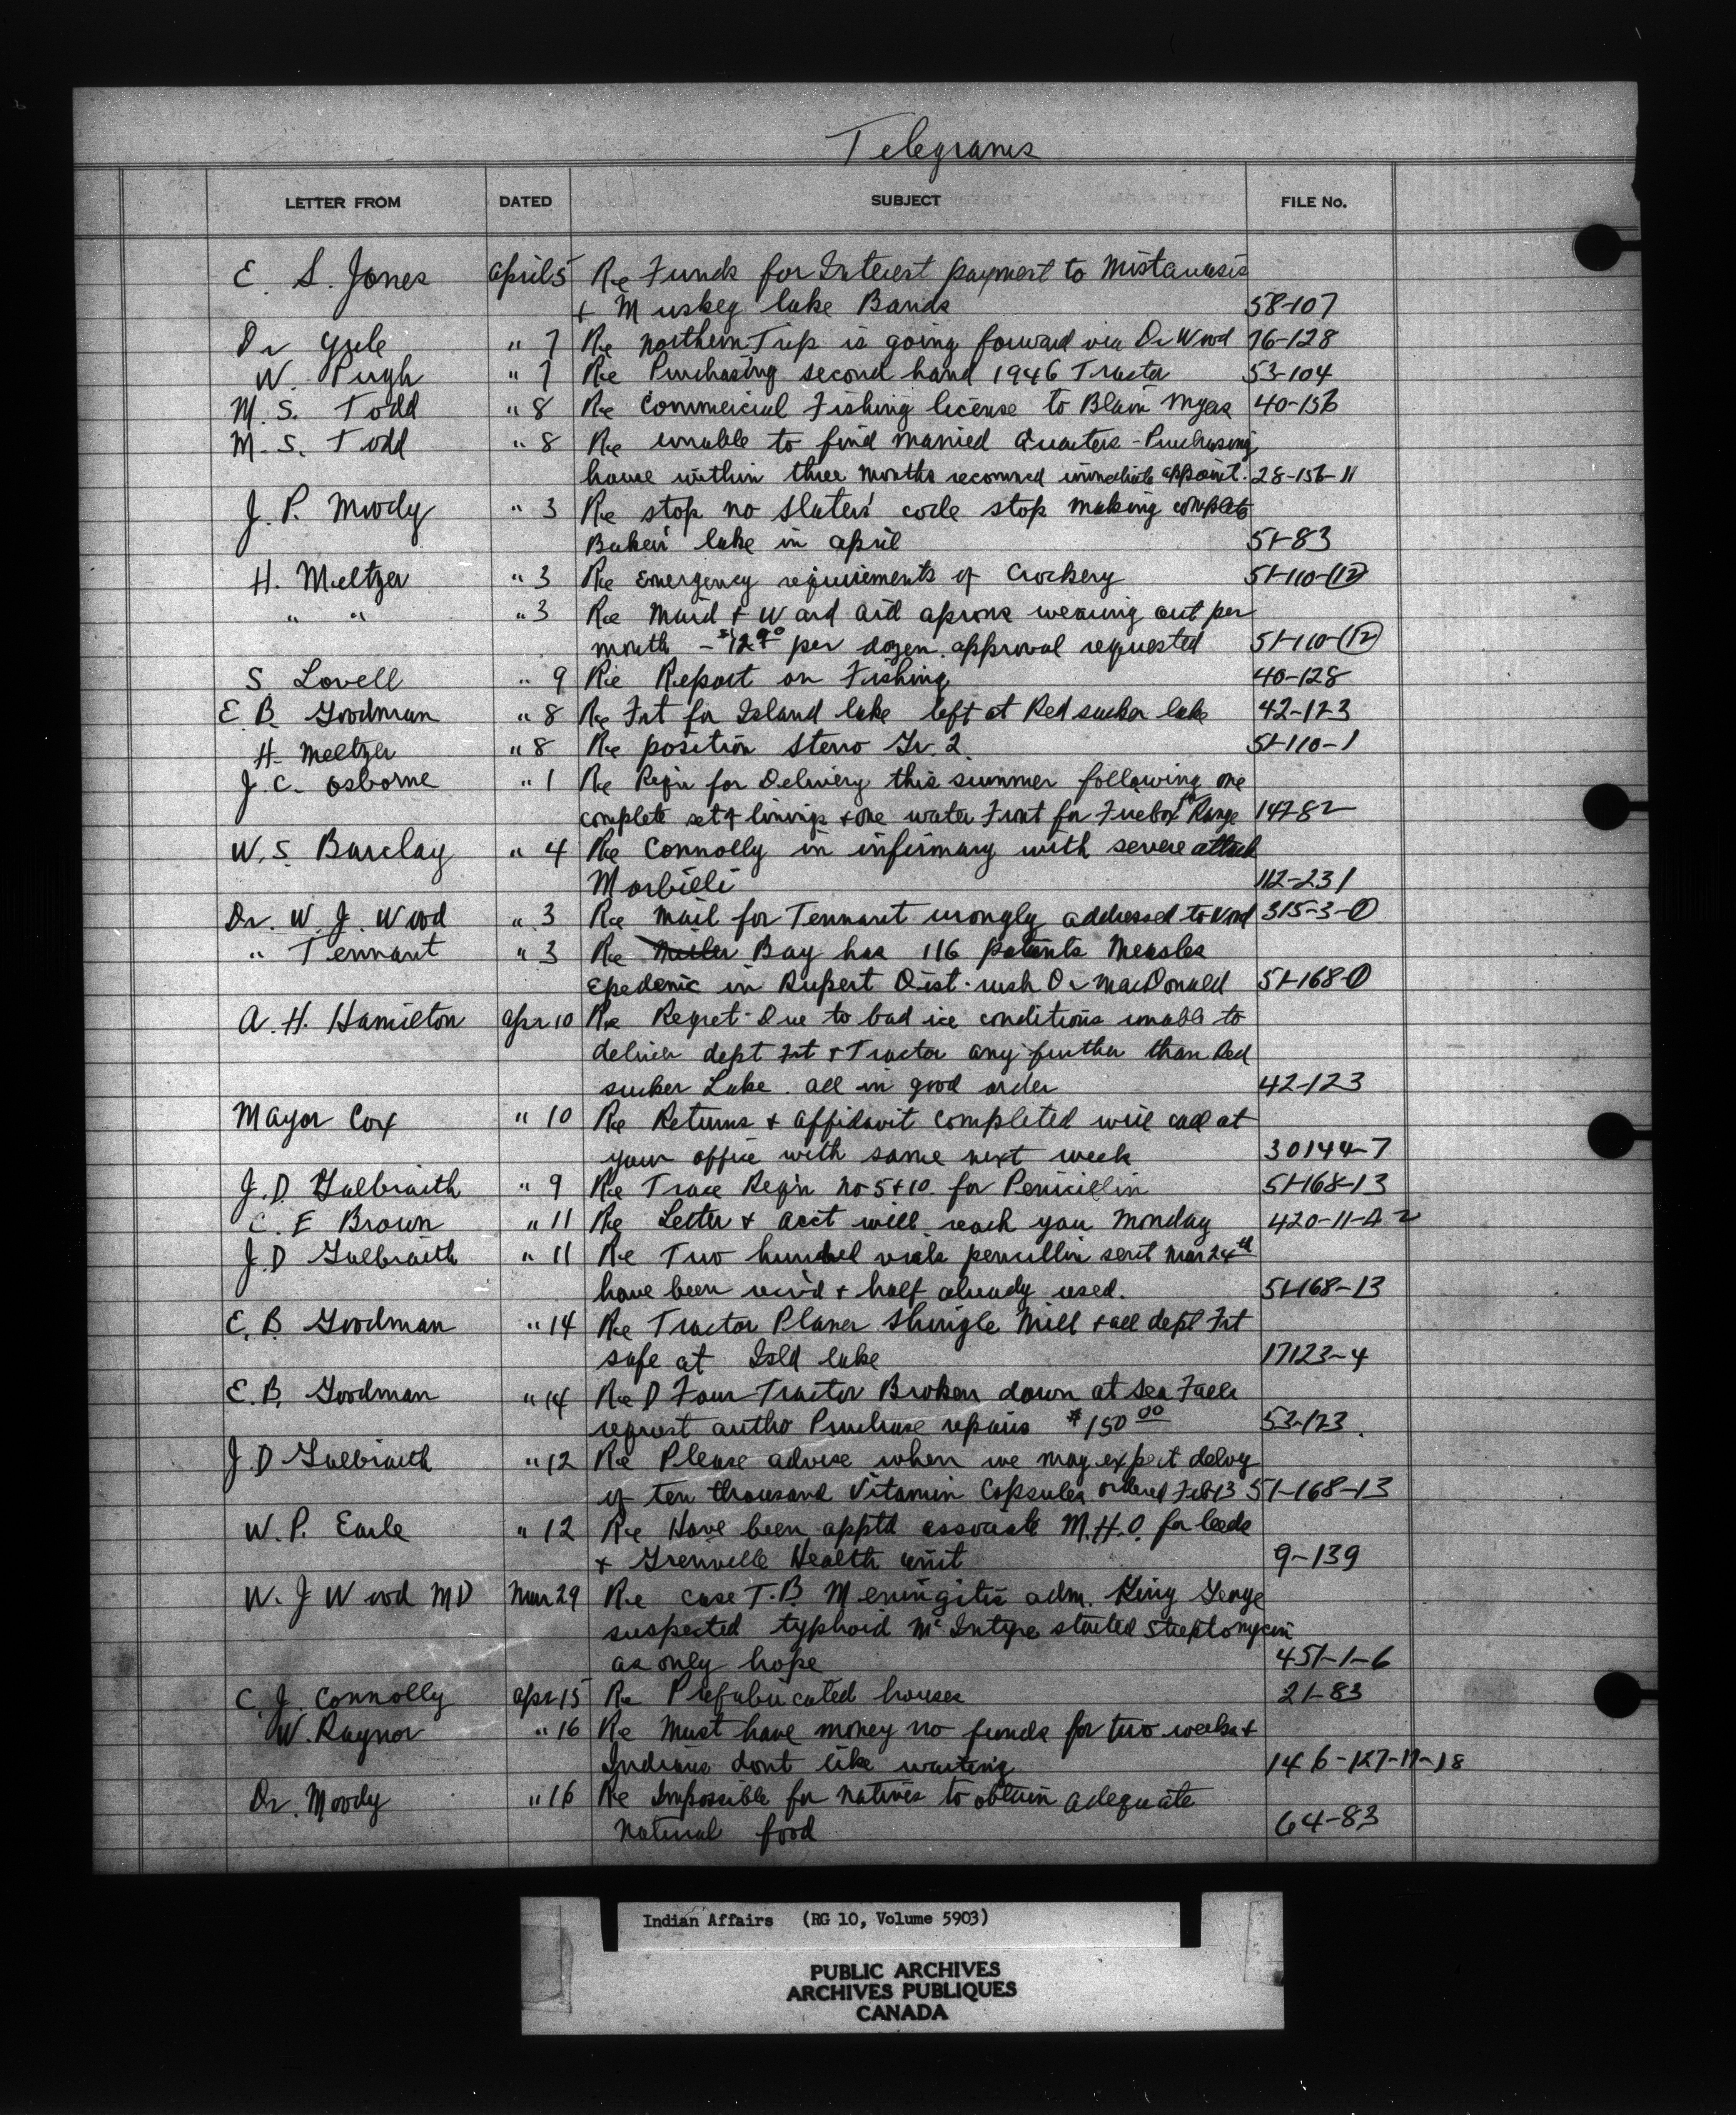 Telegrams
LETTER FROM DATED SUBJECT FILE No.
E. S. Jones April 5 Re Funds for Interest payment to Mistawasis
+ Muskeg lake Bands 58-107
Dr Yule " 7 Re Northern Trip is going forward via Dr Wood 76-128
W. Pugh " 7 Re Purchasing second hand 1946 Tractor 53-104
M. S. Todd " 8 Re Commercial Fishing license to Blain Myers 40-156
M. S. Todd " 8 Re unable to find married Quarters - Purchasing
house within three months recommd immediate appoint. 28-156-11
J. P. Moody " 3 Re stop no Slater's code stop making complete
Baker lake in april 51-83
H. Meltzer " 3 Re Emergency requirements of Crockery 51-110-(12)
" " " 3 Re Maid + Ward aid aprons wearing out per
month - $12.90 per dozen. approval requested 51-110-(12)
S Lovell " 9 Re Report on Fishing 40-128
E B. Goodman " 8 Re Frt for Island lake left at Red sucker lake 42-123
H. Meltzer " 8 Re position Steno Gr. 2. 51-110-1
J. C. Osborne " 1 Re Reqn for Delivery this summer following one
complete set of linings + one water Front for Firebox Range 147-82
W. S. Barclay " 4 Re Connolly in infirmary with severe attack
Morbilli 112-231
Dr. W. J. Wood " 3 Re Mail for Tennant wrongly addressed to Wood 315-3-(1)
" Tennant " 3 Re Miller Bay has 116 patients Measles
Epedemic in Rupert Dist. rush Dr MacDonald 51-168-(1)
A. H. Hamilton Apr 10 Re Regret - Due to bad ice conditions unable to
deliver dept Frt + Tractor any further than Red
sucker Lake. all in good order 42-123
Mayor Cox " 10 Re Returns + affidavit completed will call at
your office with same next week 30144-7
J. D. Galbraith " 9 Re Trace Reqn No 5 + 10 for Penicillin 51-168-13
C. E Brown " 11 Re Letter + acct will reach you Monday 420-11-A2
J. D Galbraith " 11 Re Two hundred vials penicillin sent Mar 24th
have been recv'd + half already used. 51-168-13
E. B. Goodman " 14 Re Tractor Planer Shingle Mill + all dept Frt
safe at Isld lake 17123-4
E. B. Goodman " 14 Re D Four Tractor Broken down at Sea Falls
request autho Purchase repairs $150 00 53-123.
J D Galbraith " 12 Re Please advise when we may expect delvy
of ten thousand Vitamin Capsules ordered Feb 13 51-168-13
W. P. Earle " 12 Re Have been apptd associate M.H.O. for Leeds
+ Grenville Health unit 9-139
W. J Wood MD Mar 29 Re case T.B. Meningitis adm. King George
suspected typhoid McIntyre started Streptomycin
as only hope 451-1-6
C. J. Connolly Apr 15 Re Prefabricated houses 21-83
W. Raynor " 16 Re Must have money no funds for two weeks +
Indians dont like waiting 146-127-11-18
Dr. Moody " 16 Re Impossible for natives to obtain adequate
natural food 64-83
Indian Affairs (RG 10, Volume 5903)
PUBLIC ARCHIVES
ARCHIVES PUBLIQUES
CANADA